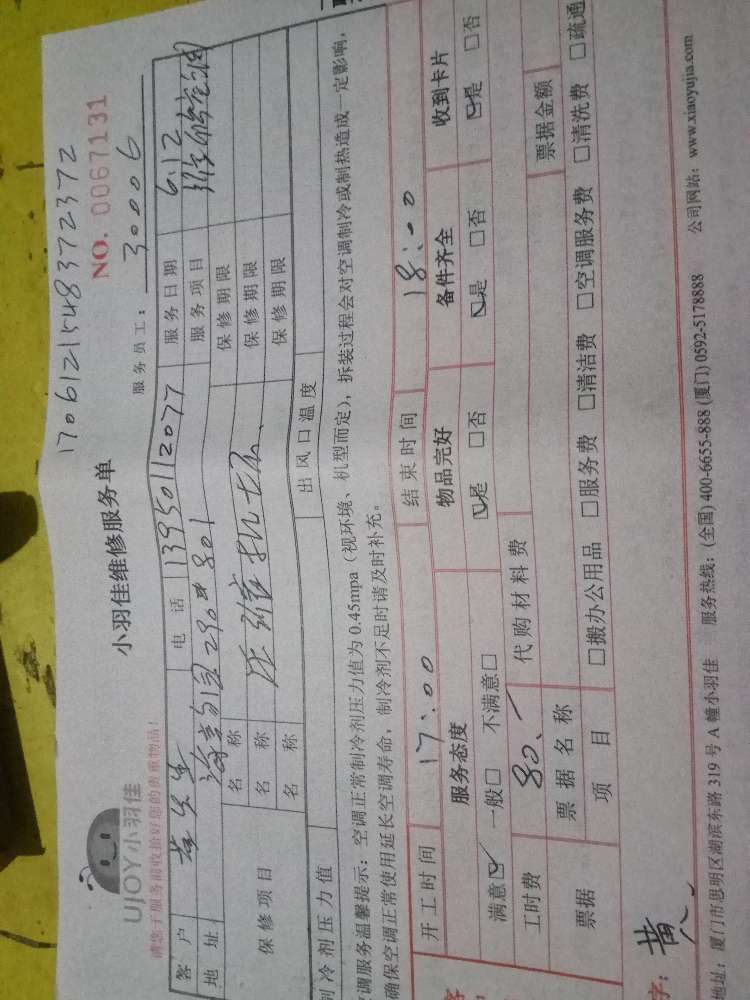 17061215483723​72
NO. 0067131
UJOY小羽佳
小羽佳维修服务单
服务员工： 30006
请您于服务前收拾好您的贵重物品！
客户 电话 13950112077 服务日期 6.12
地址 290#801 服务项目
保修项目
名称 保修期限
名称 保修期限
名称 保修期限
制冷剂压力值 出风口温度
调服务温馨提示：空调正常制冷剂压力值为0.45mpa（视环境、机型而定），拆装过程会对空调制冷或制热造成一定影响，
确保空调正常使用延长空调寿命，制冷剂不足时请及时补充。
开工时间 17:00 结束时间 18:00
服务态度 物品完好 备件齐全 收到卡片
满意☑ 一般□ 不满意□ ☑是 □否 ☑是 □否 ☑是 □否
工时费 80 代购材料费
票据 票据名称 票据金额
项目 □搬办公用品 □服务费 □清洁费 □空调服务费 □清洗费 □疏通
字： 黄
地址：厦门市思明区湖滨东路319号A幢小羽佳 服务热线：(全国) 400-6655-888 (厦门) 0592-5178888 公司网站：www.xiaoyujia.com